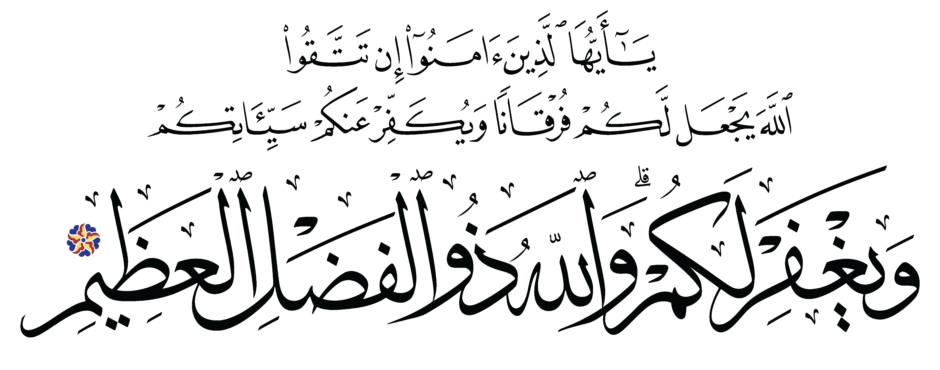 يَـٰٓأَيُّهَا ٱلَّذِينَ ءَامَنُوٓا۟ إِن تَتَّقُوا۟
ٱللَّهَ يَجْعَل لَّكُمْ فُرْقَانًا وَيُكَفِّرْ عَنكُمْ سَيِّـَٔاتِكُمْ
وَيَغْفِرْ لَكُمْ ۗ وَٱللَّهُ ذُو ٱلْفَضْلِ ٱلْعَظِيمِ